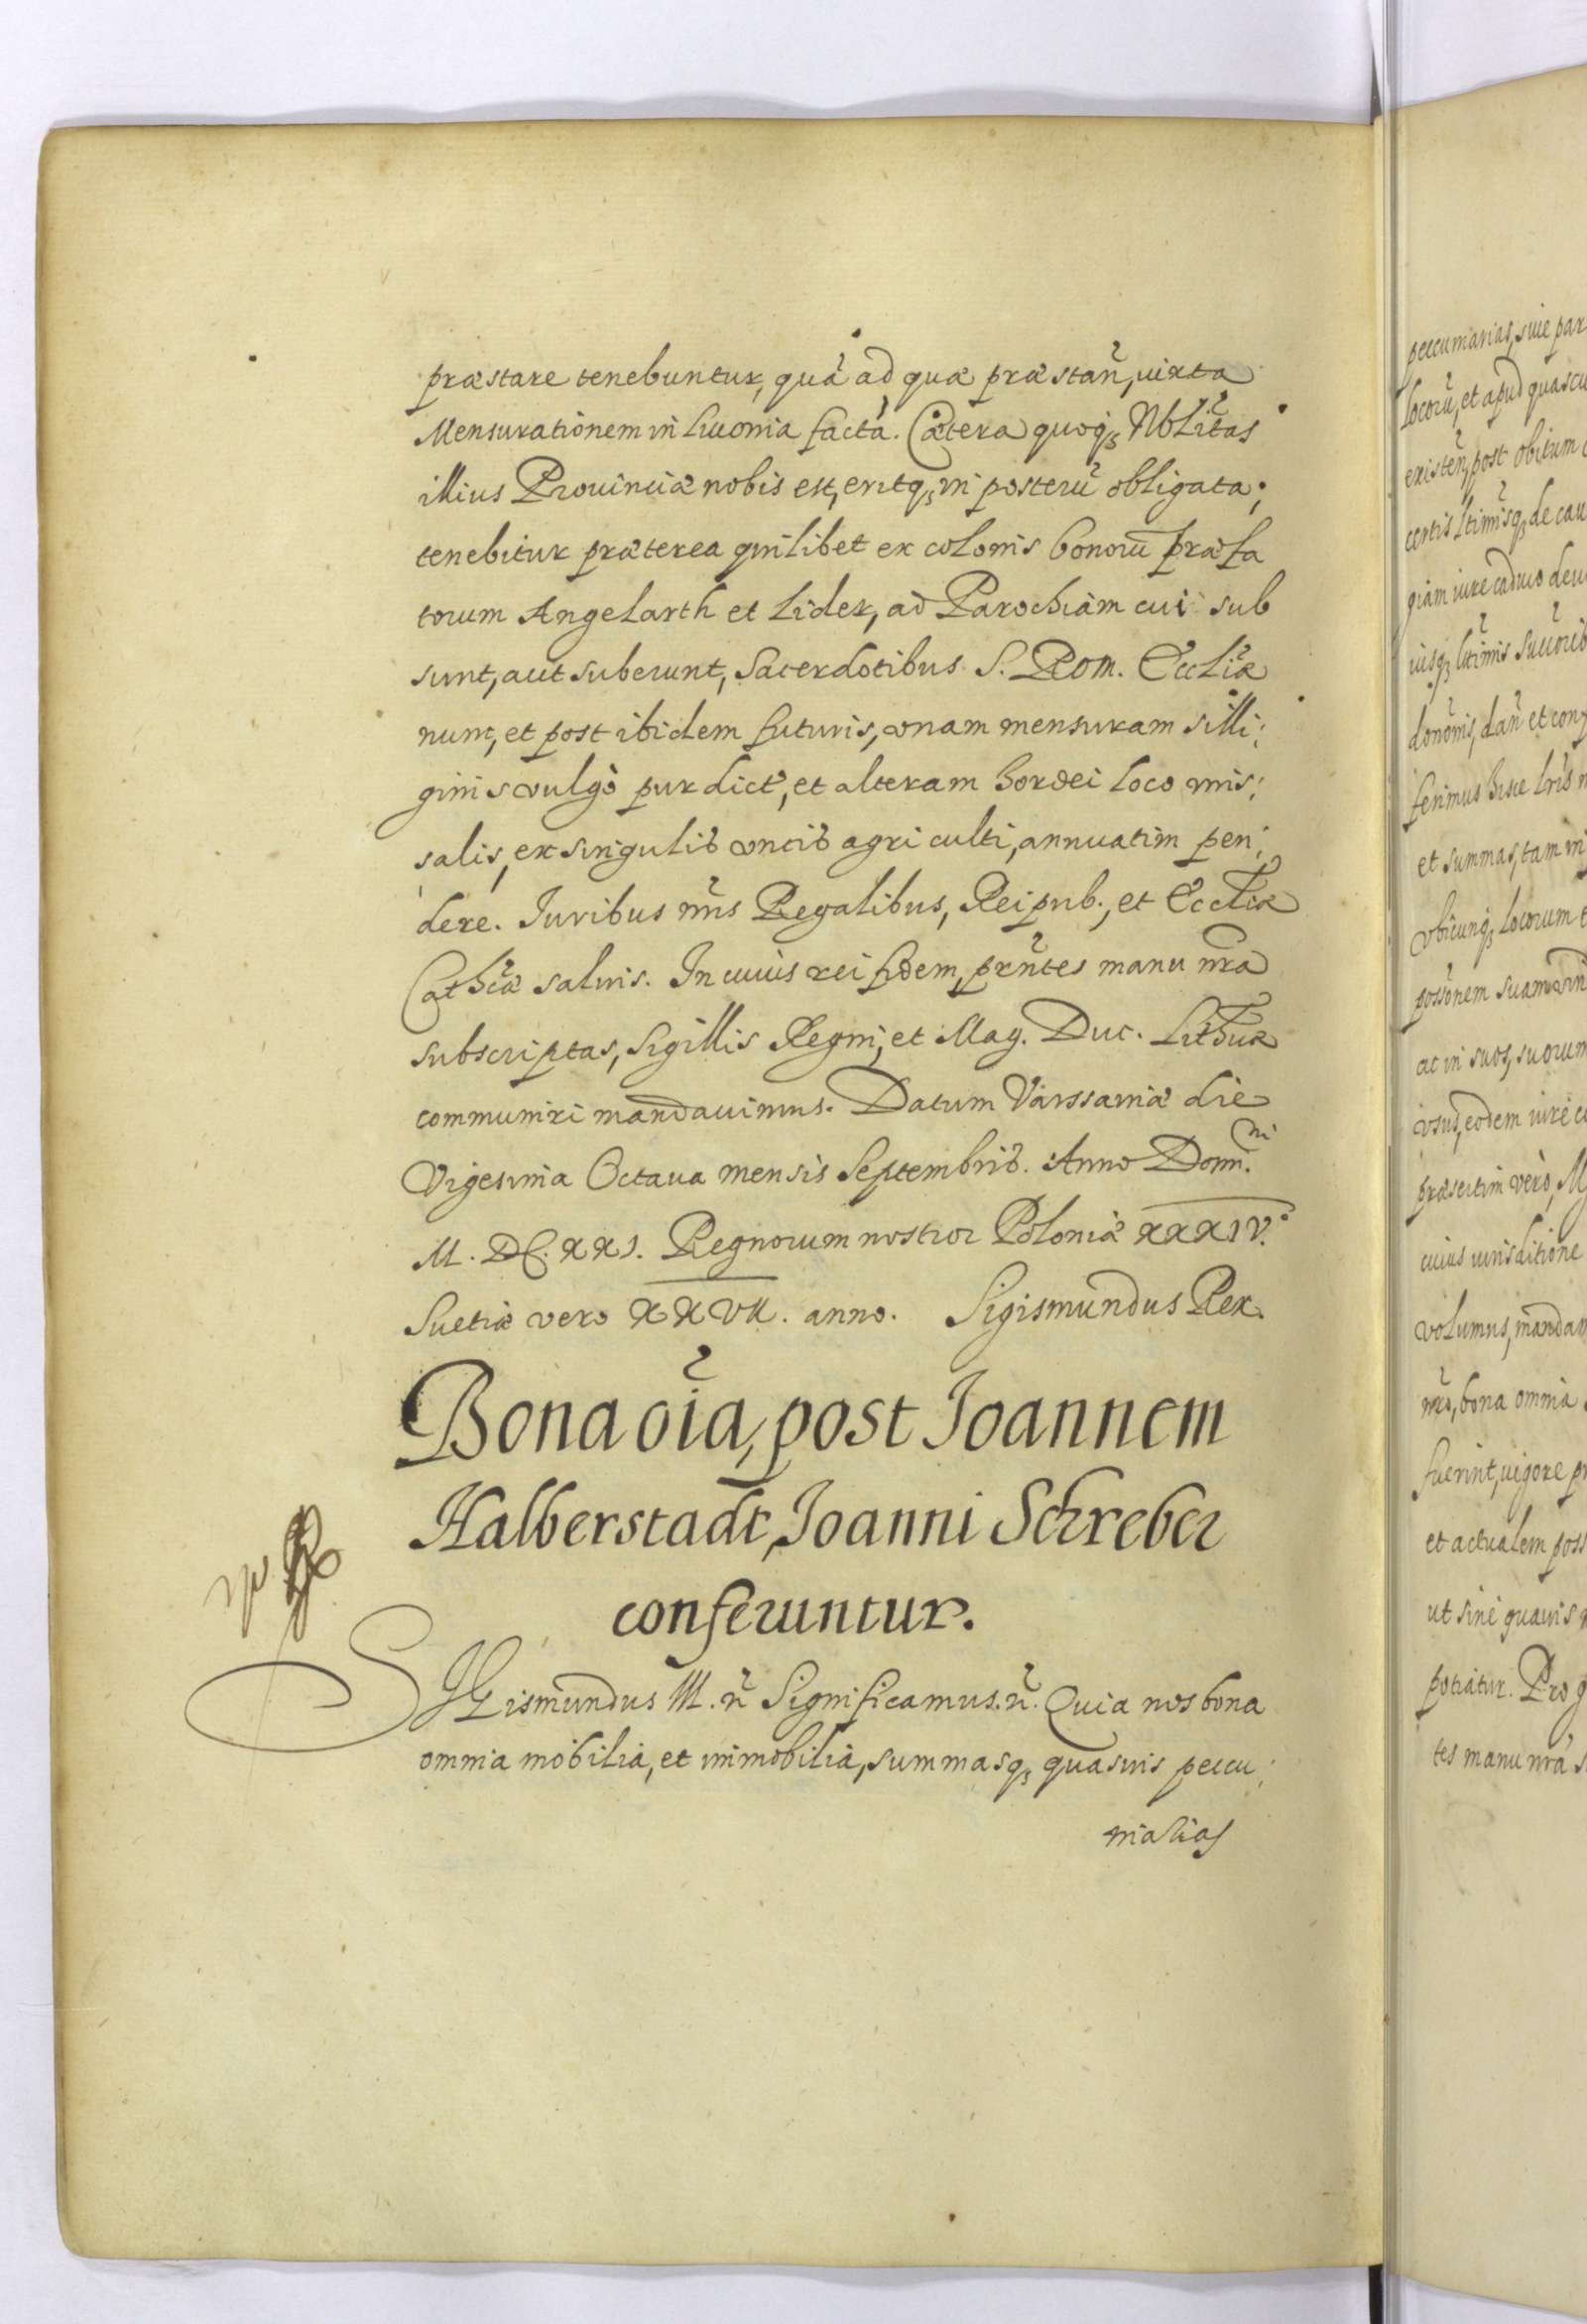 præstare tenebuntur, quã ad quæ præstañ, iuxta
Mensurationem in Liuonia factã. Cætera quoq; Nblĩtas
illius Prouinciæ nobis est, eritq; in posterũ obligata;
tenebitur præterea quilibet ex colonis bonorũ præfa
torum Angelarth et Lider, ad Parochiam cui sub
sunt, aut suberunt, Sacerdotibus S. Rom. Eccliæ
nunc, et post ibidem futuris, vnam mensuram silli:
ginis vulgò pur dict, et alteram hordei loco mis:
salis, ex singulis vncis agri culti, annuatim pen:
dere. Iuribus nr̃is Regalibus, Reipub., et Eccliæ
Cathcæ saluis. In cuius rei fidem, prñtes manu nrã
subscriptas, sigillis Regni, et Mag. Duc. Lithuæ
communiri mandauimus. Datum Varssauiæ die
Vigesima Octaua mensis Septembris. Anno Domni.
M. DC. XXI. Regnorum nostror Poloniæ XXXIV.
Suetiæ vero XXVII. anno. Sigismundus Rex.
Bona oĩa, post Joannem
Halberstadt, Joanni Schreber
conferuntur.
SIGismundus III. ñ Significamus. ñ. Quia nos bona
omnia mobilia, et immobilia, summasq; quasuis peccu:
niarias
peccuniarias, siue par
locorũ, et apud quascu
existeñ, post obitum
certis ltimisq; de cau
giam iure caduco deu
iusq; ltimis succorib
donõnis, dañ et con
ferimus hisce lris n
et summas, tam in
vbicunq; locorum e
possõnem suam
ac in suos, suorum
vsus, eodem iure c
præsertim verò, M
cuius iurisditione
volumus, mandam
nr̃o, bona omnia
fuerint, uigore pr
et actualem poss
ut sine quauis
potiatur. Pro
tes manu nrã s